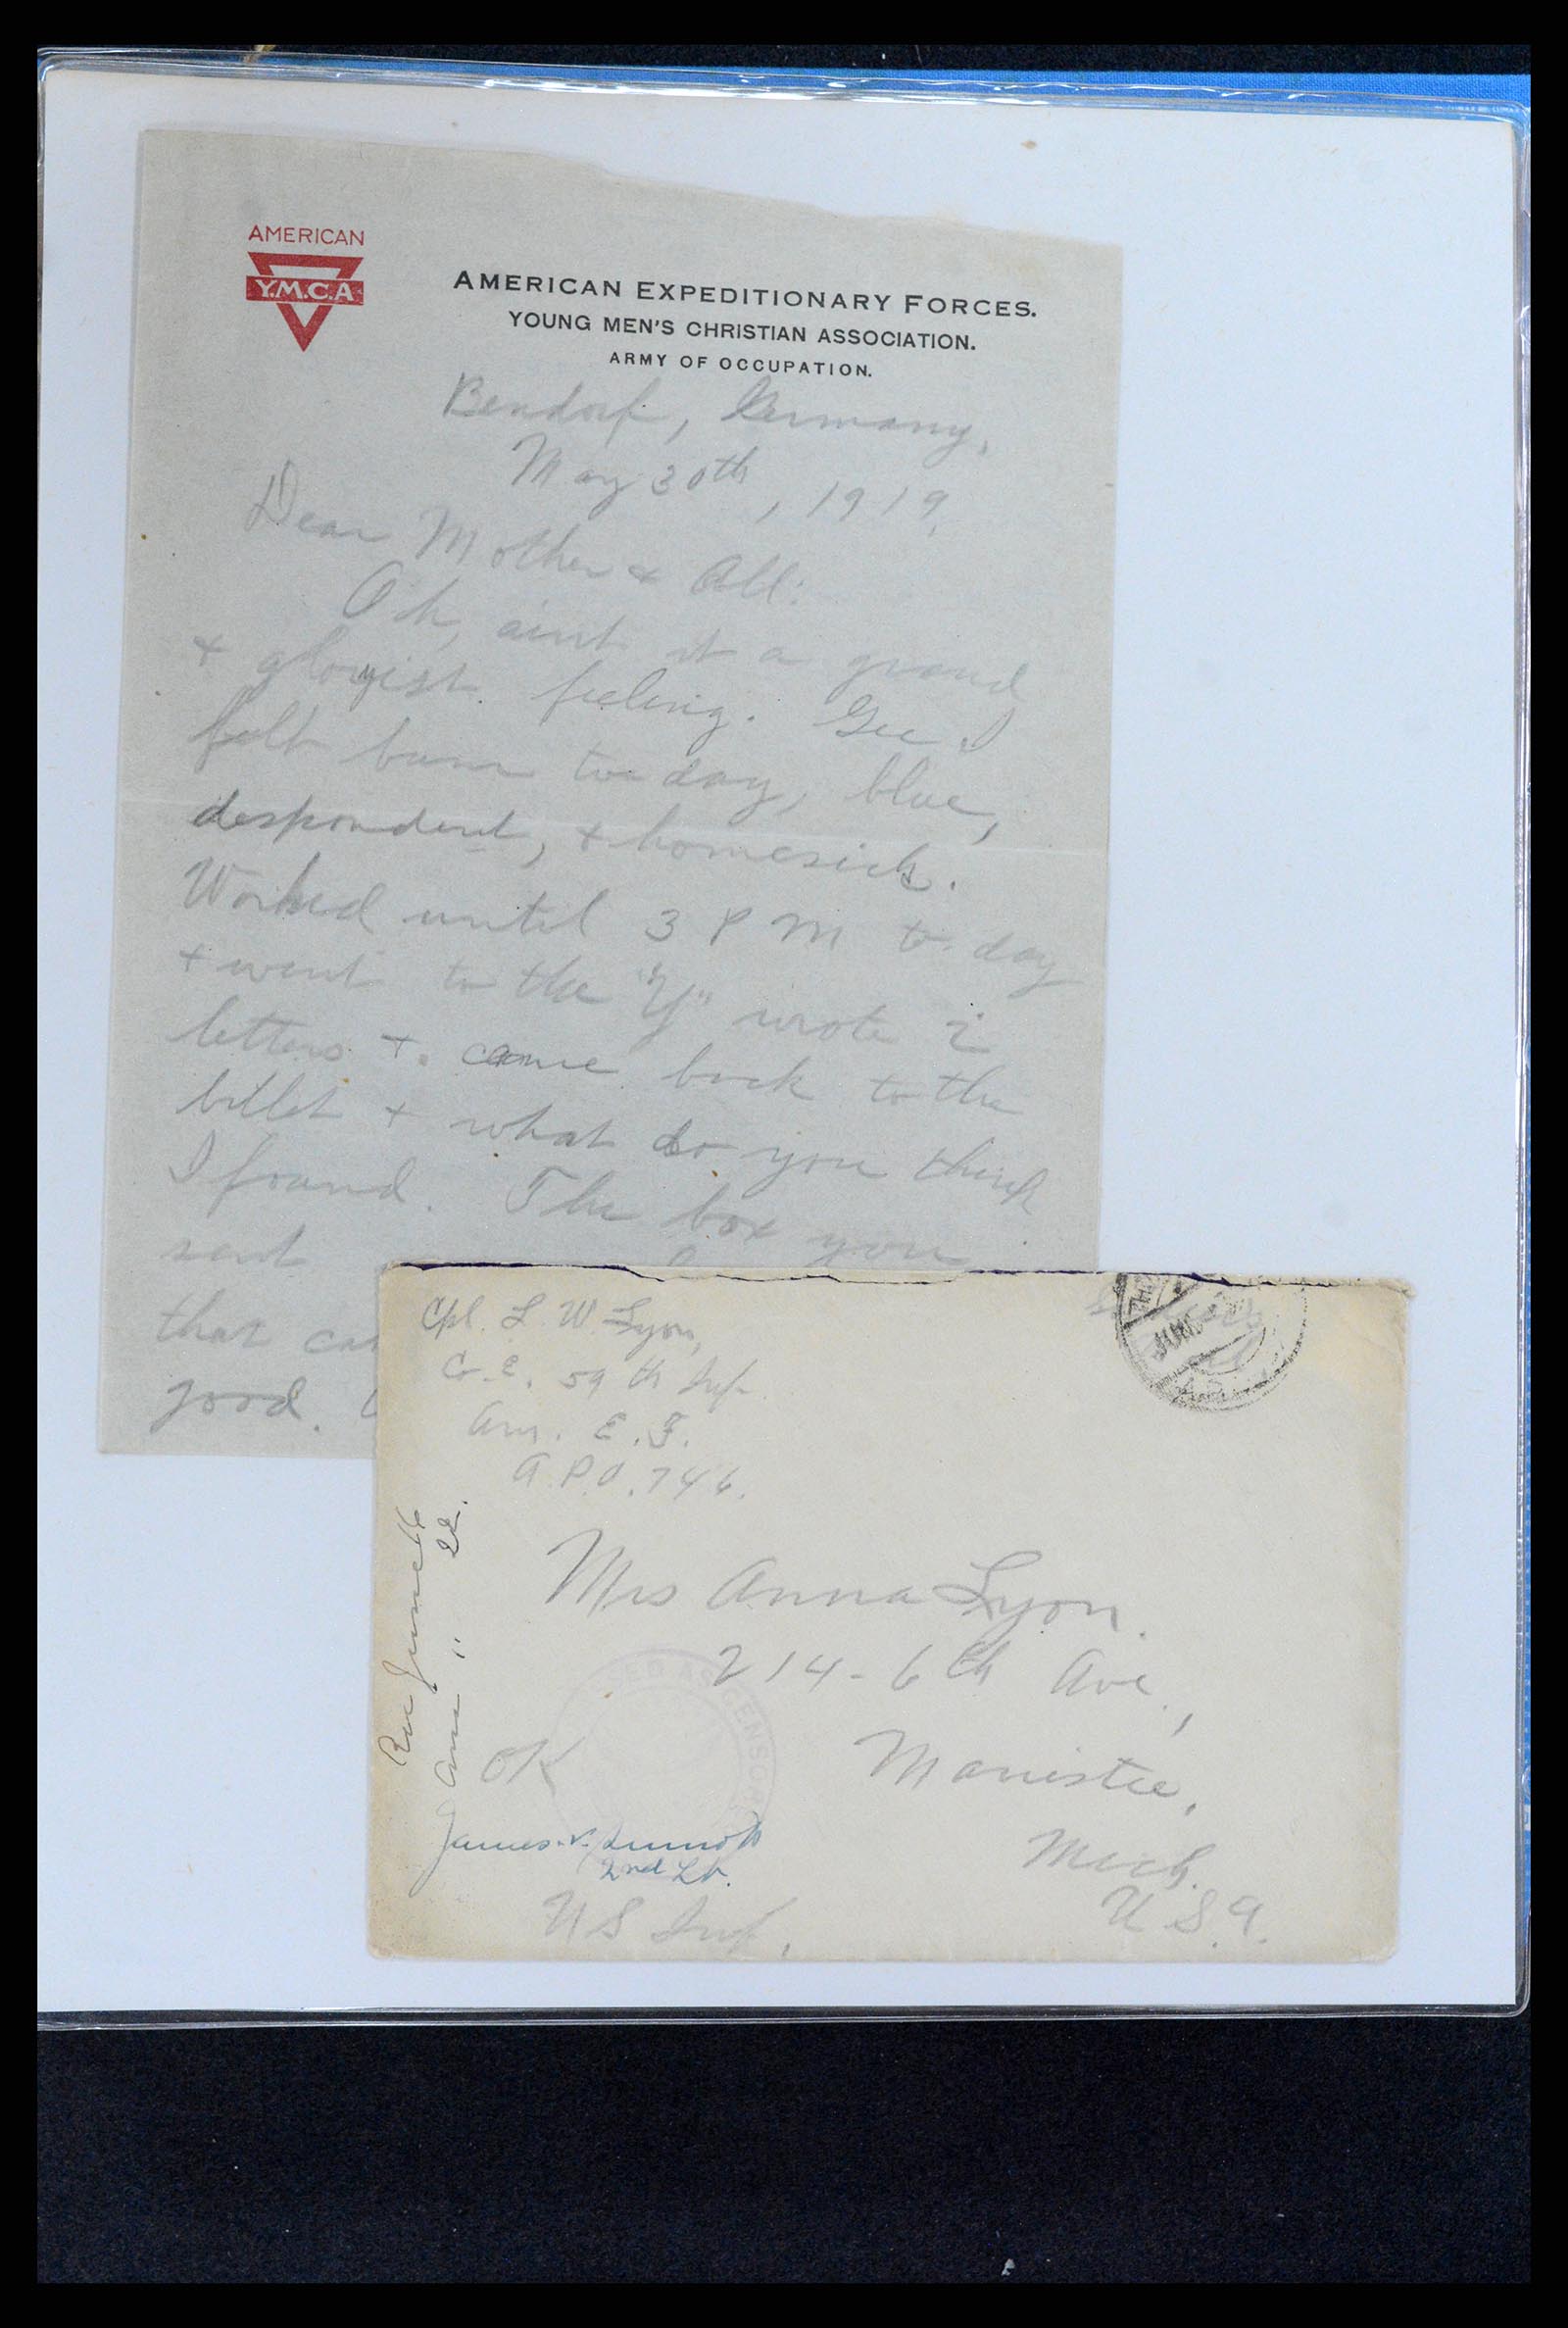 AMERICAN
Y.M.C.A
AMERICAN EXPEDITIONARY FORCES.
YOUNG MEN'S CHRISTIAN ASSOCIATION.
ARMY OF OCCUPATION.
Bendorf, Germany,
May 30th, 1919.
Dear Mother & All:
Oh, aint it a grand
& gloryist feeling. Gee I
felt bum to day, blue,
despondent, & homesick.
Worked until 3 P M to day
& went to the "Y" wrote 2
letters & came back to the
billet & what do you think
I found. The box you
sent
that
good.
Cpl. L. W. Lyon,
Co. E. 59th Inf.
Am. E. F.
A.P.O. 746.
Mrs Anna Lyon.
214 - 6th Ave.,
Manistee,
Mich.
U.S.A.
Rec June 16
Ans " 22.
AS CENSOR
OK
James. V.
2nd Lt.
US Inf.
JUN